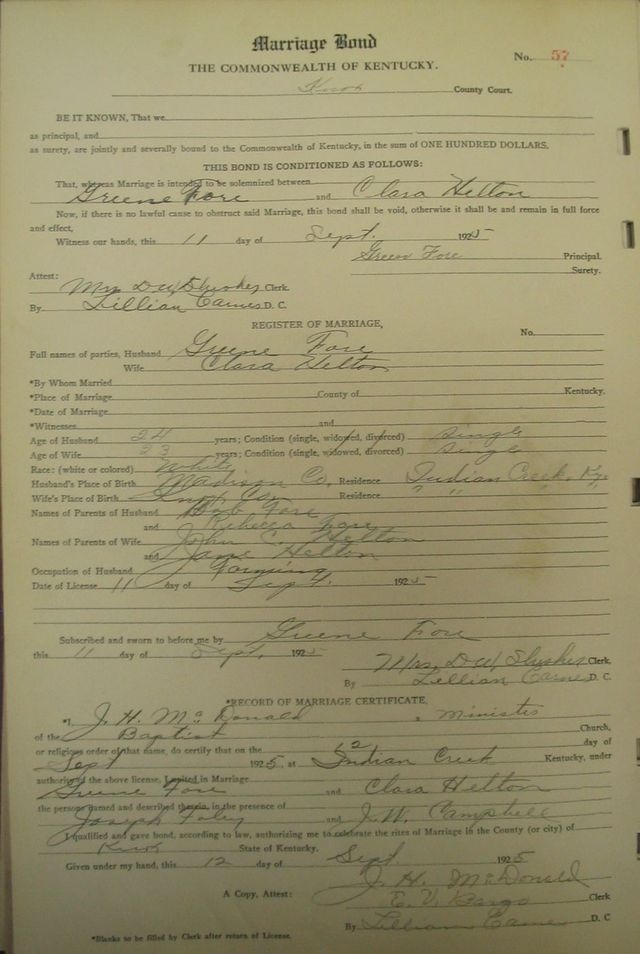 Marriage Bond
THE COMMONWEALTH OF KENTUCKY.
No. 57
Knox County Court.
BE IT KNOWN, That we
as principal, and
as surety, are jointly and severally bound to the Commonwealth of Kentucky, in the sum of ONE HUNDRED DOLLARS.
THIS BOND IS CONDITIONED AS FOLLOWS:
That, whereas Marriage is intended to be solemnized between
Greene Fore and Clara Helton
Now, if there is no lawful cause to obstruct said Marriage, this bond shall be void, otherwise it shall be and remain in full force
and effect,
Witness our hands, this 11 day of Sept. 1925
Green Fore Principal.
Surety.
Attest:
Mrs D W Slusher Clerk.
By Lillian Carnes D. C.
REGISTER OF MARRIAGE,
No.
Full names of parties, Husband Greene Fore
Wife Clara Helton
*By Whom Married
*Place of Marriage County of Kentucky.
*Date of Marriage
*Witnesses and
Age of Husband 24 years; Condition (single, widowed, divorced) single
Age of Wife 23 years; Condition (single, widowed, divorced) single
Race: (white or colored) White
Husband's Place of Birth Madison Co, Residence Indian Creek, Ky.
Wife's Place of Birth Knox Co, Residence " "
Names of Parents of Husband Bob Fore
and Rebecca Fore
Names of Parents of Wife John C. Helton
and Jane Helton
Occupation of Husband Farming
Date of License 11 day of Sept. 1925
Subscribed and sworn to before me by Greene Fore
this 11 day of Sept, 1925
Mrs. D W Slusher Clerk.
By Lillian Carnes D. C.
*RECORD OF MARRIAGE CERTIFICATE,
*I, J. H. McDonald a Minister
of the Baptist Church,
or religious order of that name, do certify that on the 12 day of
Sept 1925, at Indian Creek Kentucky, under
authority of the above license, I united in Marriage
Greene Fore and Clara Helton
the persons named and described therein, in the presence of
Joseph Foley and J. W. Campbell
I qualified and gave bond, according to law, authorizing me to celebrate the rites of Marriage in the County (or city) of
Knox State of Kentucky.
Given under my hand, this 12 day of Sept 1925
J. H. McDonald
A Copy, Attest: E. V. Bargo Clerk
By Lillian Carnes D. C
*Blanks to be filled by Clerk after return of License.